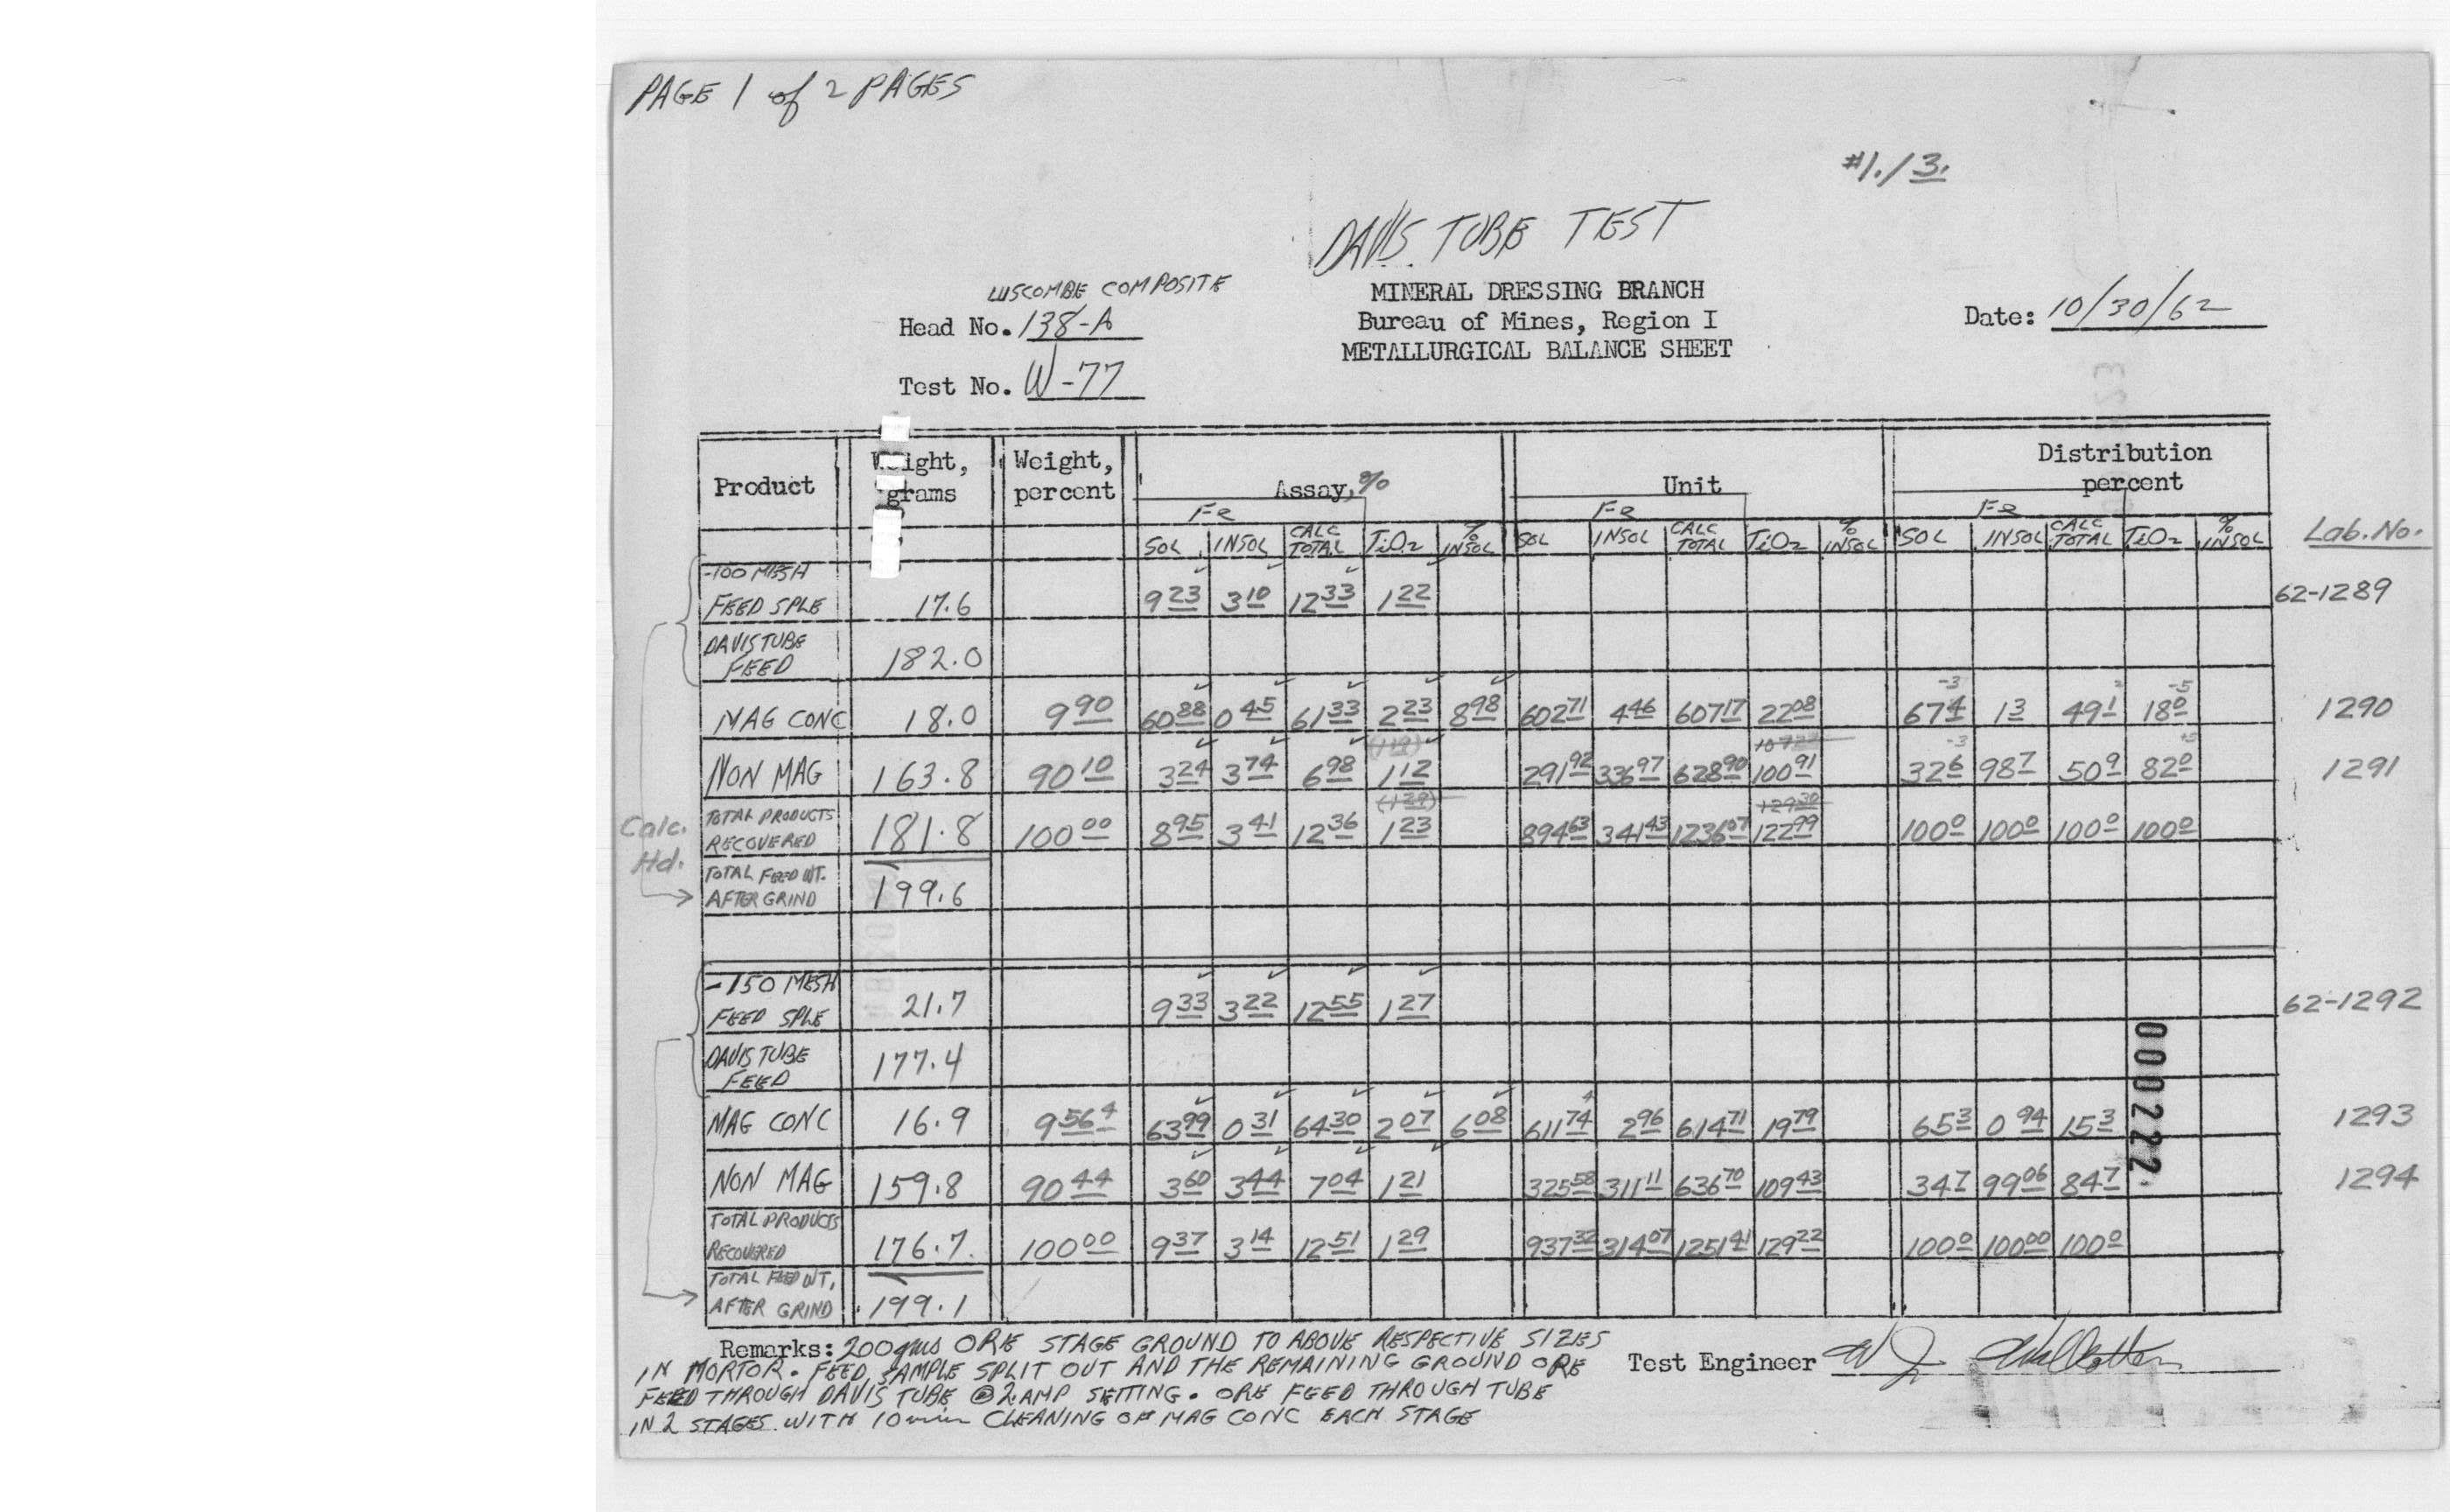 PAGE 1 of 2 PAGES
#1./3.
DAVIS TUBE TEST
LUSCOMBE COMPOSITE
Head No. 138-A
Test No. W-77
MINERAL DRESSING BRANCH
Bureau of Mines, Region I
METALLURGICAL BALANCE SHEET
Date: 10/30/62
Product Weight, grams Weight, percent Assay, % Unit Distribution percent
Fe Fe Fe
SOL INSOL CALC TOTAL TiO2 % INSOL SOL INSOL CALC TOTAL TiO2 % INSOL SOL INSOL CALC TOTAL TiO2 % INSOL Lab. No.
-100 MESH FEED SPLE 17.6 9 23 3 10 12 33 1 22 62-1289
DAVIS TUBE FEED 182.0
-3 -5
MAG CONC 18.0 9 90 60 88 0 45 61 33 2 23 8 98 602 71 4 46 607 17 22 08 67 4 1 3 49 1 18 0 1290
(1 19) 107 27 -3 +5
NON MAG 163.8 90 10 3 24 3 74 6 98 1 12 291 92 336 97 628 90 100 91 32 6 98 7 50 9 82 0 1291
(1 29) 129 30
TOTAL PRODUCTS RECOVERED 181.8 100 00 8 95 3 41 12 36 1 23 894 63 341 43 1236 07 122 99 100 0 100 0 100 0 100 0
Calc. Hd.
TOTAL FEED WT. AFTER GRIND 199.6
-150 MESH FEED SPLE 21.7 9 33 3 22 12 55 1 27 62-1292
DAVIS TUBE FEED 177.4
MAG CONC 16.9 9 56 4 63 99 0 31 64 30 2 07 6 08 611 74 2 96 614 71 19 79 65 3 0 94 15 3 1293
NON MAG 159.8 90 44 3 60 3 44 7 04 1 21 325 58 311 11 636 70 109 43 34 7 99 06 84 7 1294
TOTAL PRODUCTS RECOVERED 176.7 100 00 9 37 3 14 12 51 1 29 937 32 314 07 1251 41 129 22 100 0 100 00 100 0
TOTAL FEED WT. AFTER GRIND 199.1
000222
Remarks: 200 gms ORE STAGE GROUND TO ABOVE RESPECTIVE SIZES
IN MORTOR. FEED SAMPLE SPLIT OUT AND THE REMAINING GROUND ORE
FEED THROUGH DAVIS TUBE @ 2 AMP SETTING. ORE FEED THROUGH TUBE
IN 2 STAGES WITH 10 min CLEANING OF MAG CONC EACH STAGE
Test Engineer